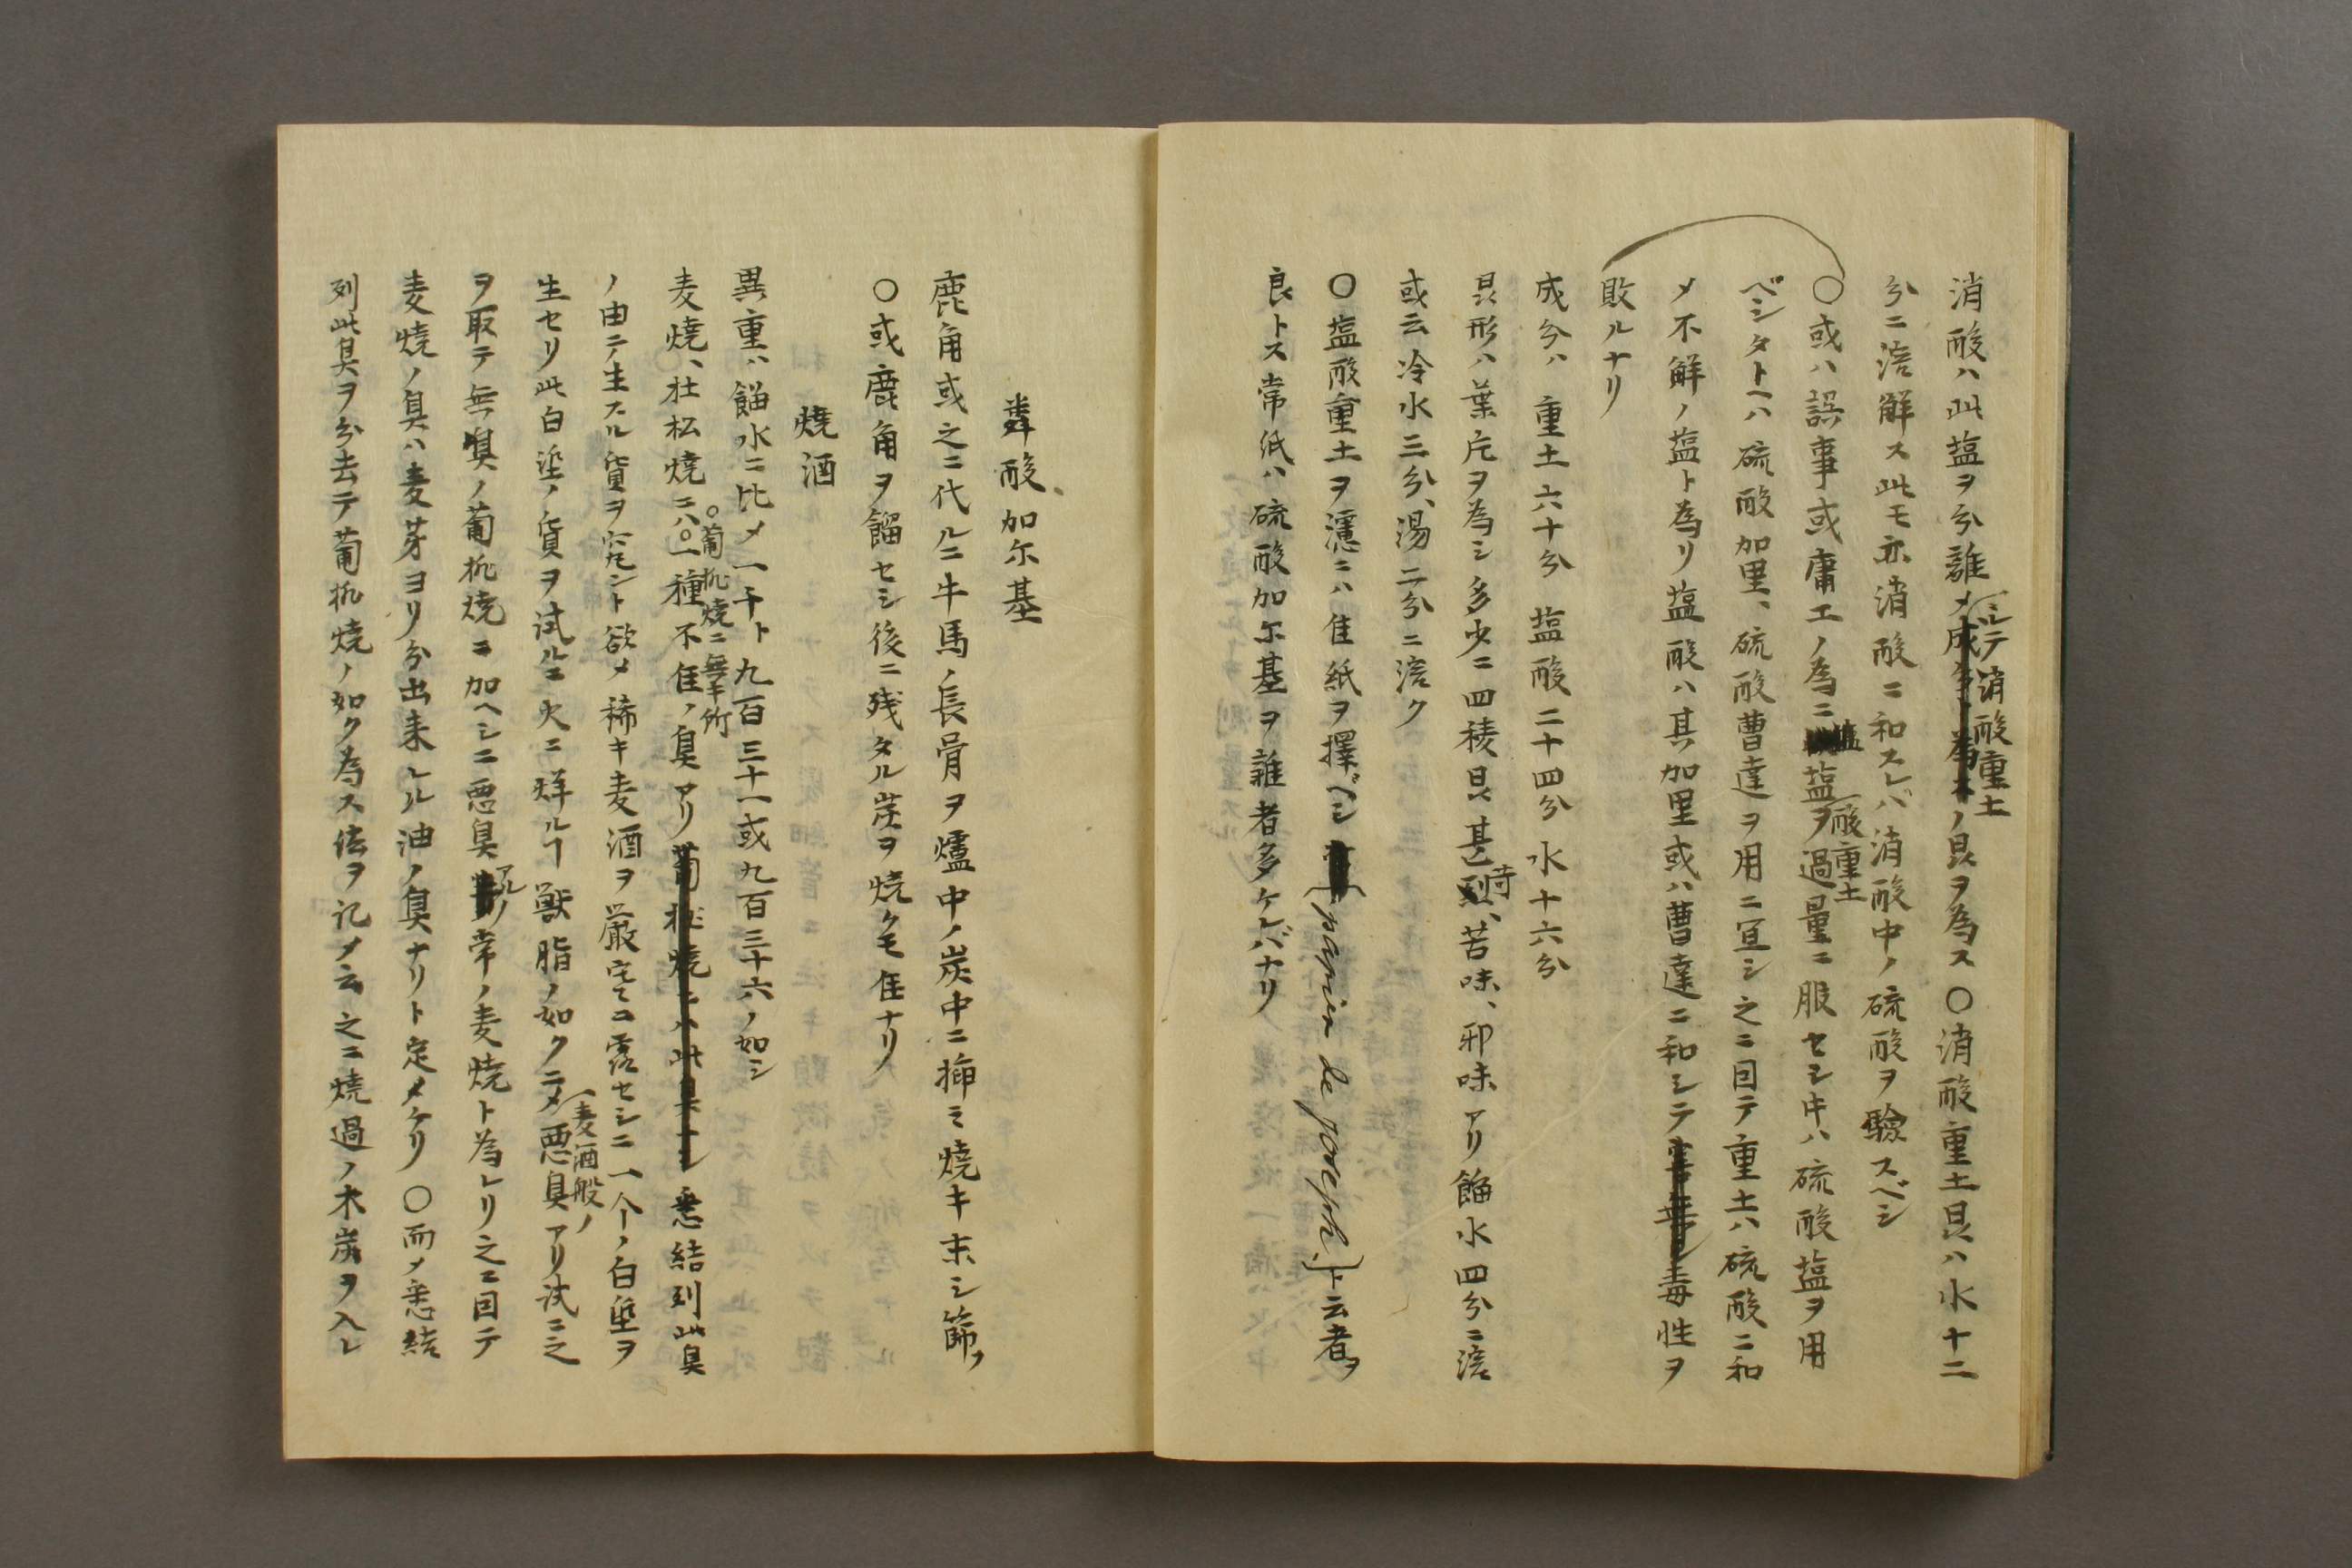 消酸ハ此塩ヲ分離メシテ消酸重土ノ晶ヲ為ス〇消酸重土晶ハ水十二
分ニ溶解ス此モ亦消酸ニ和スレバ消酸中ノ硫酸ヲ驗スベシ
〇或ハ誤事或庸工ノ為ニ塩酸重土ヲ過量ニ服セシ㐧ハ硫酸塩ヲ用
ベシタトヘハ硫酸加里、硫酸曹達ヲ用ニ宜シ之ニ因テ重土ハ硫酸ニ和
メ不解ノ塩ト為リ塩酸ハ其加里或ハ曹達ニ和シテ毒性ヲ
敗ルナリ
成分ハ 重土六十分 塩酸二十四分 水十六分
晶形ハ葉片ヲ為シ多少ニ四稜晶甚苛、苦味、邪味アリ餾水四分ニ溶
或云冷水三分、湯二分ニ溶ク
〇塩酸重土ヲ濾ニハ佳紙ヲ擇ベシ(papier de joseph.)ト云者ヲ
良トス常紙ハ硫酸加尓基ヲ雜者多ケレバナリ
燐酸加尓基
鹿角或之ニ代ルニ牛馬ノ長骨ヲ爐中ノ炭中ニ挿ミ焼キ末シ篩フ
〇或鹿角ヲ餾セシ後ニ残タル炭ヲ焼クモ佳ナリ
焼酒
異重ハ餾水ニ比メ一千ト九百三十一或九百三十六ノ如シ
麦焼、杜松焼ニハ〇葡萄焼ニ無キ所一種不佳ノ臭アリ 悉結列此臭
ノ由テ生スル質ヲ究ント欲メ稀キ麦酒ヲ厳寒ニ露セシニ一个ノ白垽ヲ
生セリ此白垽ノ質ヲ試ルニ火ニ烊ルヿ獣脂ノ如クニメ麦酒般ノ悪臭アリ試ニ之
ヲ取テ無嗅ノ葡萄焼ニ加ヘシニ悪臭アルノ常ノ麦焼ト為レリ之ニ因テ
麦焼ノ臭ハ麦芽ヨリ分出来レル油ノ臭ナリト定メケリ〇而メ悉結
列此臭ヲ分去テ葡萄焼ノ如ク為ス法ヲ記メ云之ニ焼過ノ木炭ヲ入レ